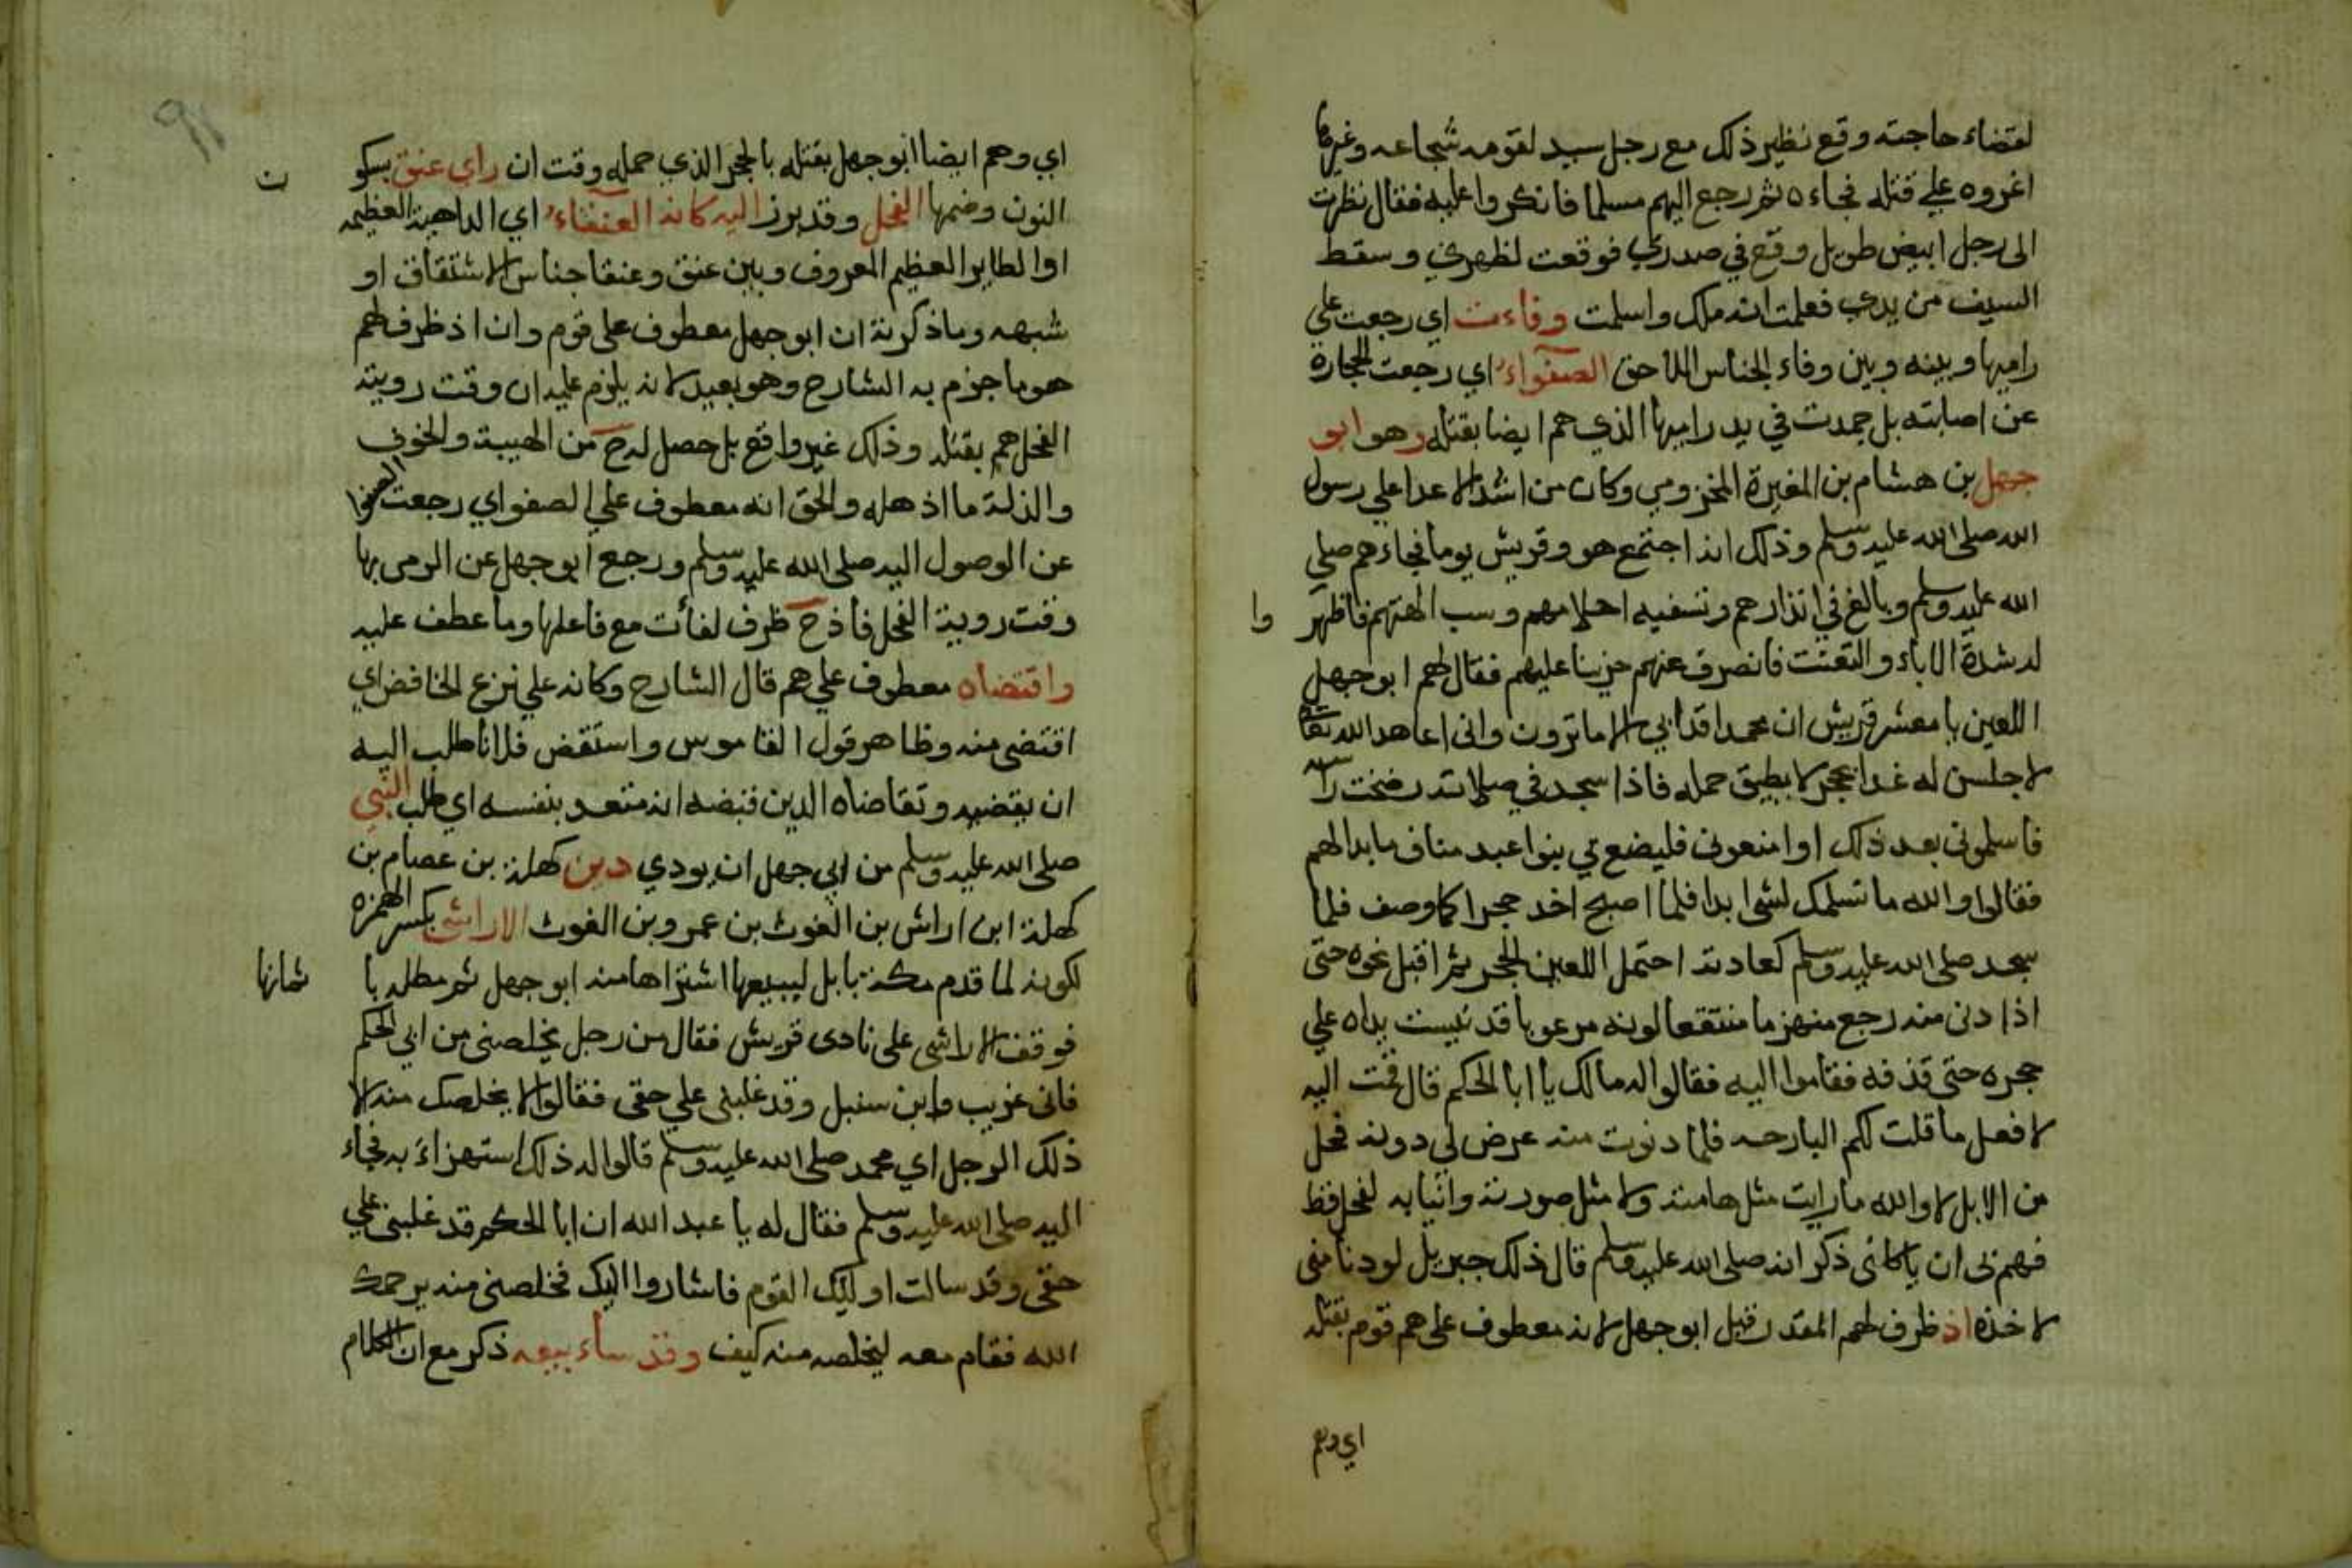 لقضاء حاجته وقع نظير ذلك مع رجل سيد لقومه شجاعه وغيرها
اغروه علي قتله فجاءه ثم رجع اليهم مسلما فانكروا عليه فقال نظرت
الى رجل ابيض طويل وقع في صدري فوقعت لظهري وسقط
السيف من يدي فعلمت انه ملك واسلمت وفاءت اي رجعت علي
راميها وبينه وبين وفاء الجناس اللاحق الصفواء اي رجعت الحجارة
عن اصابته بل جمدت في يد راميها الذي هم ايضا بقتله وهو ابو
جهل بن هشام بن المغيرة المخزومي وكان من اشد الاعدا علي رسول
الله صلى الله عليه وسلم وذلك انه اجتمع هو وقريش يوما فجاءهم صلي
الله عليه وسلم وبالغ في انذارهم وتسفيه احلامهم وسب الهتهم فاظهر وا
له شدة الاباء والتعنت فانصرف عنهم حزينا عليهم فقال لهم ابو جهل
اللعين يا معشر قريش ان محمدا قد ابي الا ما ترون واني اعاهد الله تعا
لاجلسن له غدا بحجر لا يطيق حمله فاذا سجد في صلاته رضخت راسه
فاسلموني بعد ذلك او امنعوني فليضع بي بنوا عبد مناف ما بدا لهم
فقالوا والله ما نسلمك لشي ابدا فلما اصبح اخد حجرا كما وصف فلما
سجد صلى الله عليه وسلم كعادته احتمل اللعين الحجر ثم اقبل نحوه حتى
اذا دنى منه رجع منهزما منتقعا لونه مرعوبا قد يبست يداه علي
حجره حتى قذفه فقاموا اليه فقالوا له مالك يا ابا الحكم قال قمت اليه
لافعل ما قلت لكم البارحه فلما دنوت منه عرض لي دونه فحل
من الابل لا والله ما رايت مثل هامته ولا مثل صورته وانيابه لفحل قط
فهم بي ان ياكلني ذكر انه صلى الله عليه وسلم قال ذلك جبريل لو دنا مني
لاخذه اذ ظرف لهم المقدر قبل ابو جهل لانه معطوف على هم قوم بقتله
اي وهم
اي وهم ايضا ابو جهل بقتله بالحجر الذي حمله وقت ان راي عنق بسكو ن
النون وضمها الفحل وقد برز اليه كانه العنقاء اي الداهية العظيمه
او الطاير العظيم المعروف وبين عنق وعنقا جناس الاشتقاق او
شبهه وما ذكرته ان ابو جهل معطوف على قوم وان اذ ظرف لهم
هو ما جزم به الشارح وهو بعيد لانه يلزم عليه ان وقت رويته
الفحل هم بقتله وذلك غير واقع بل حصل له ح من الهيبة والخوف
والذلة ما اذهله والحق انه معطوف علي الصفوا اي رجعت الصفوا
عن الوصول اليه صلى الله عليه وسلم ورجع ابو جهل عن الرمي بها
وقت روية الفحل فاذ ح ظرف لفأت مع فاعلها وما عطف عليه
واقتضاه معطوف علي هم قال الشارح وكانه علي نزع الخافض اي
اقتضى منه وظاهر قول القاموس واستقض فلانا طلب اليه
ان يقضيه وتقاضاه الدين قبضه انه متعد بنفسه اي طلب النبي
صلى الله عليه وسلم من ابي جهل ان يودي دين كهلة بن عصام بن
كهلة ابن اراش بن الغوث بن عمرو بن الغوث الاراشي بكسر الهمزه
لكونه لما قدم مكة بابل ليبيعها اشتراها منه ابو جهل ثم مطله با ثمانها
فوقف الاراشي على نادى قريش فقال من رجل يخلصني من ابي الحكم
فاني غريب وابن سبيل وقد غلبني علي حقي فقالوا لا يخلصك منه الا
ذلك الرجل اي محمد صلى الله عليه وسلم قالوا له ذلك استهزاء به فجاء
اليه صلى الله عليه وسلم فقال له يا عبد الله ان ابا الحكم قد غلبني علي
حقي وقد سالت اوليك القوم فاشاروا اليك فخلصني منه يرحمك
الله فقام معه ليخلصه منه كيف وقد ساء بيعه ذكر مع ان الكلام